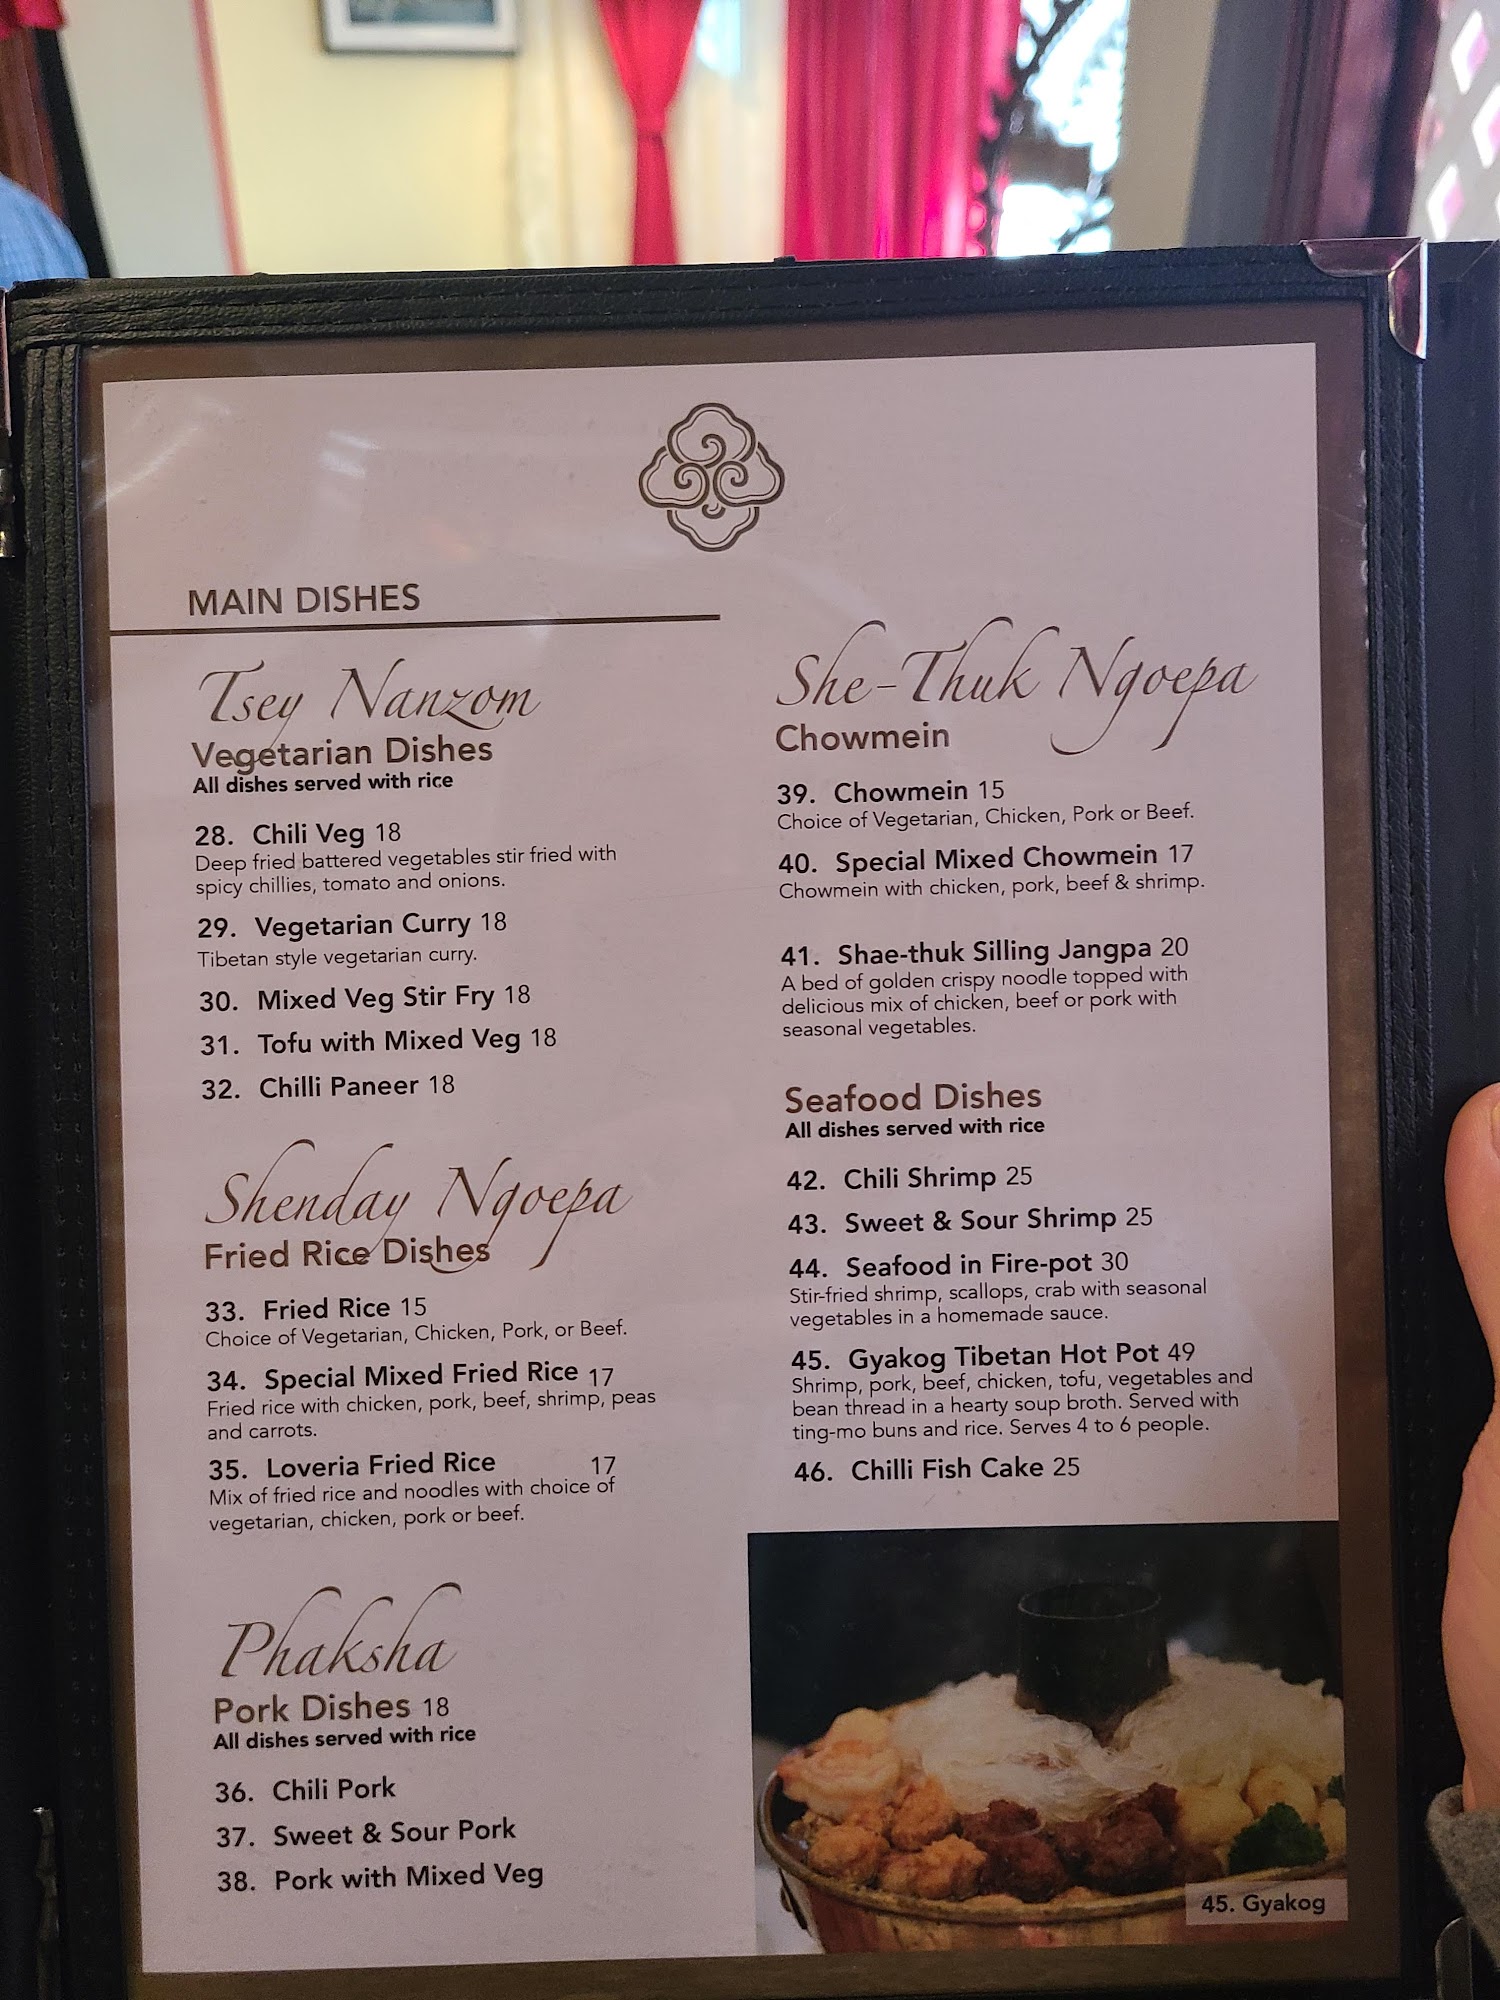 MAIN DISHES
Tsey Nanzom
Vegetarian Dishes
All dishes served with rice
28. Chili Veg 18
Deep fried battered vegetables stir fried with
spicy chillies, tomato and onions.
29. Vegetarian Curry 18
Tibetan style vegetarian curry.
30. Mixed Veg Stir Fry 18
31. Tofu with Mixed Veg 18
32. Chilli Paneer 18
Shenday Ngoepa
Fried Rice Dishes
33. Fried Rice 15
Choice of Vegetarian, Chicken, Pork, or Beef.
34. Special Mixed Fried Rice 17
Fried rice with chicken, pork, beef, shrimp, peas
and carrots.
35. Loveria Fried Rice 17
Mix of fried rice and noodles with choice of
vegetarian, chicken, pork or beef.
Phaksha
Pork Dishes 18
All dishes served with rice
36. Chili Pork
37. Sweet & Sour Pork
38. Pork with Mixed Veg
She-Thuk Ngoepa
Chowmein
39. Chowmein 15
Choice of Vegetarian, Chicken, Pork or Beef.
40. Special Mixed Chowmein 17
Chowmein with chicken, pork, beef & shrimp.
41. Shae-thuk Silling Jangpa 20
A bed of golden crispy noodle topped with
delicious mix of chicken, beef or pork with
seasonal vegetables.
Seafood Dishes
All dishes served with rice
42. Chili Shrimp 25
43. Sweet & Sour Shrimp 25
44. Seafood in Fire-pot 30
Stir-fried shrimp, scallops, crab with seasonal
vegetables in a homemade sauce.
45. Gyakog Tibetan Hot Pot 49
Shrimp, pork, beef, chicken, tofu, vegetables and
bean thread in a hearty soup broth. Served with
ting-mo buns and rice. Serves 4 to 6 people.
46. Chilli Fish Cake 25
45. Gyakog